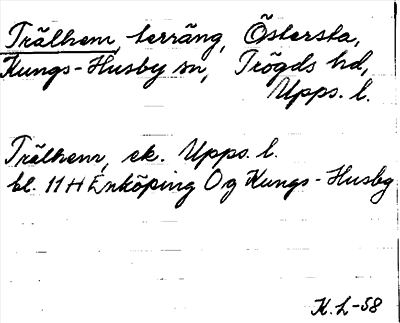 Trälhem, terräng, Östersta,
Kungs-Husby sn, Trögds hd,
Upps. l.
Trälhem, ek. Upps. l.
bl. 11 H Enköping Og Kungs-Husby
K.L-58